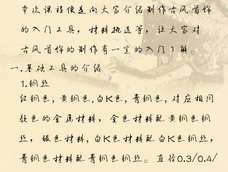 本次课程便是向大家介绍制作古风首饰
的入门工具，材料挑选等，让大家对
古风首饰的制作有一定的入门了解
一.基础工具的介绍
1.铜丝
红铜色，黄铜色，白K色，青铜色，对应相同
颜色的金属材料，金色材料配黄铜色铜
丝，银色材料，白K色材料配白K色铜丝，
青铜色材料配青铜色铜丝。直径0.3/0.4/